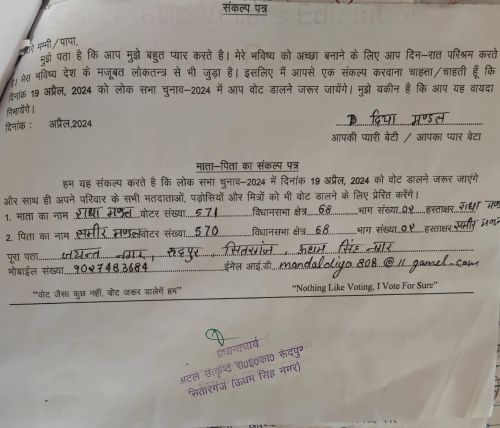 संकल्प पत्र
प्यारे मम्मी/पापा,
मुझे पता है कि आप मुझे बहुत प्यार करते है। मेरे भविष्य को अच्छा बनाने के लिए आप दिन-रात परिश्रम करते
है। मेरा भविष्य देश के मजबूत लोकतन्त्र से भी जुड़ा है। इसलिए मैं आपसे एक संकल्प करवाना चाहता/चाहती हूँ कि
दिनांक 19 अप्रैल, 2024 को लोक सभा चुनाव-2024 में आप वोट डालने जरूर जायेंगे। मुझे यकीन है कि आप यह वायदा
निभायेंगे।
दिनांक : अप्रैल,2024
दिया मण्डल
आपकी प्यारी बेटी / आपका प्यार बेटा
माता-पिता का संकल्प पत्र
हम यह संकल्प करते है कि लोक सभा चुनाव-2024 में दिनांक 19 अप्रैल, 2024 को वोट डालने जरूर जाएंगे
और साथ ही अपने परिवार के सभी मतदाताओं, पड़ोसियों और मित्रों को भी वोट डालने के लिए प्रेरित करेंगे।
1. माता का नाम राधा मण्डल वोटर संख्या 571 विधानसभा क्षेत्र 68 भाग संख्या 02 हस्ताक्षर राधा
2. पिता का नाम समीर मण्डल वोटर संख्या 570 विधानसभा क्षेत्र 68 भाग संख्या 02 हस्ताक्षर समीर
पूरा पता नगर, रुद्रपुर, सितारगंज, ऊधम सिंह नगर
मोबाईल संख्या 9027483684 ईमेल आई.डी. mandaldiya808@
"वोट जैसा कुछ नहीं, वोट जरूर डालेगें हम" "Nothing Like Voting, I Vote For Sure"
प्रधानाचार्य
अटल उत्कृष्ट रा0इ0का0 रूदपुर
सितारगंज (ऊधम सिंह नगर)